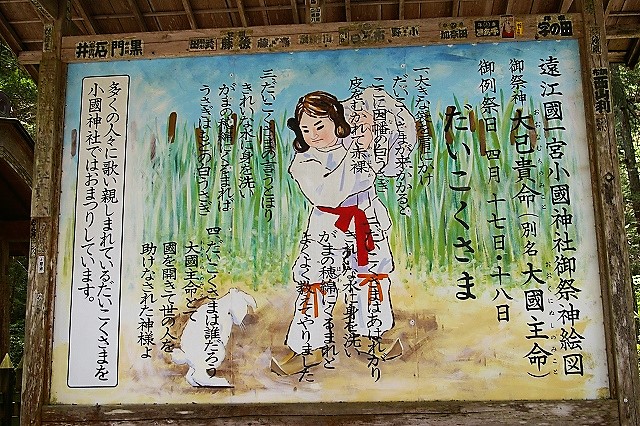 遠江國一宮小國神社御祭神絵図
御祭神 大己貴命(別名 大國主命)
おおなむちのみこと
おおくにぬしのみこと
御例祭日 四月十七日・十八日
だいこくさま
一、大きな袋を肩にかけ
だいこくさまが来かかると
ここに因幡の白うさぎ
皮をむかれて赤裸
二、だいこくさまはあわれがり
きれいな水に身を洗い
がまの穂綿にくるまれと
よくよく教えてやりました
三、だいこくさまの言うとおり
きれいな水に身を洗い
がまの穂綿にくるまれば
うさぎはもとの白うさぎ
四、だいこくさまは誰だろう
大國主命とて
國を開きて世の人を
助けなされた神様よ
多くの人々に歌い親しまれているだいこくさまを
小國神社ではおまつりしています。